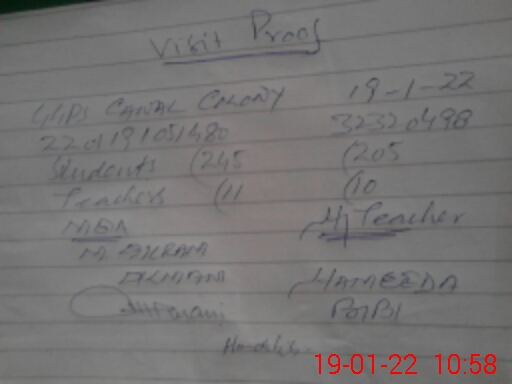 Visit Proof
GGPS CANAL COLONY 19-1-22
32320498
Students (245 (205
Teachers (11 (10
MEA H/Teacher
M AKRAM
HAMEEDA
BIBI
19-01-22 10:58